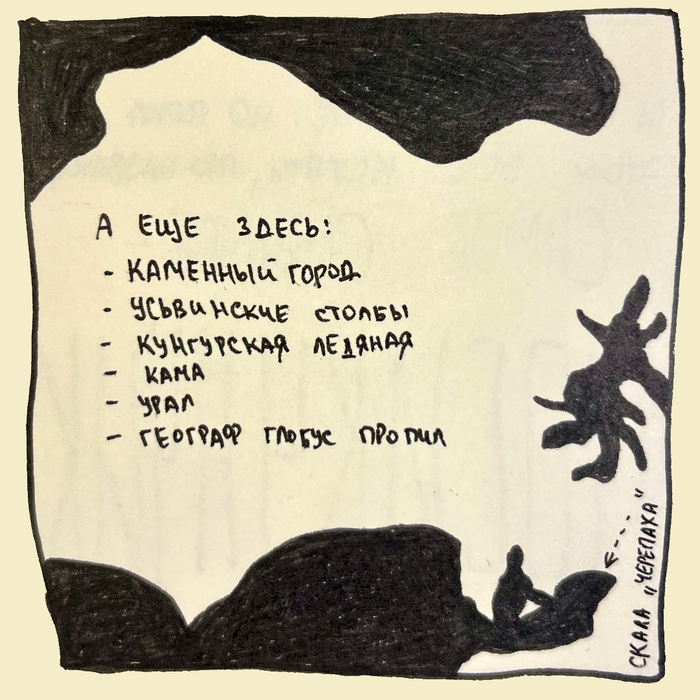 А ЕЩЕ ЗДЕСЬ:
- КАМЕННЫЙ ГОРОД
- УСЬВИНСКИЕ СТОЛБЫ
- КУНГУРСКАЯ ЛЕДЯНАЯ
- КАМА
- УРАЛ
- ГЕОГРАФ ГЛОБУС ПРОПИЛ
СКАЛА „ЧЕРЕПАХА"